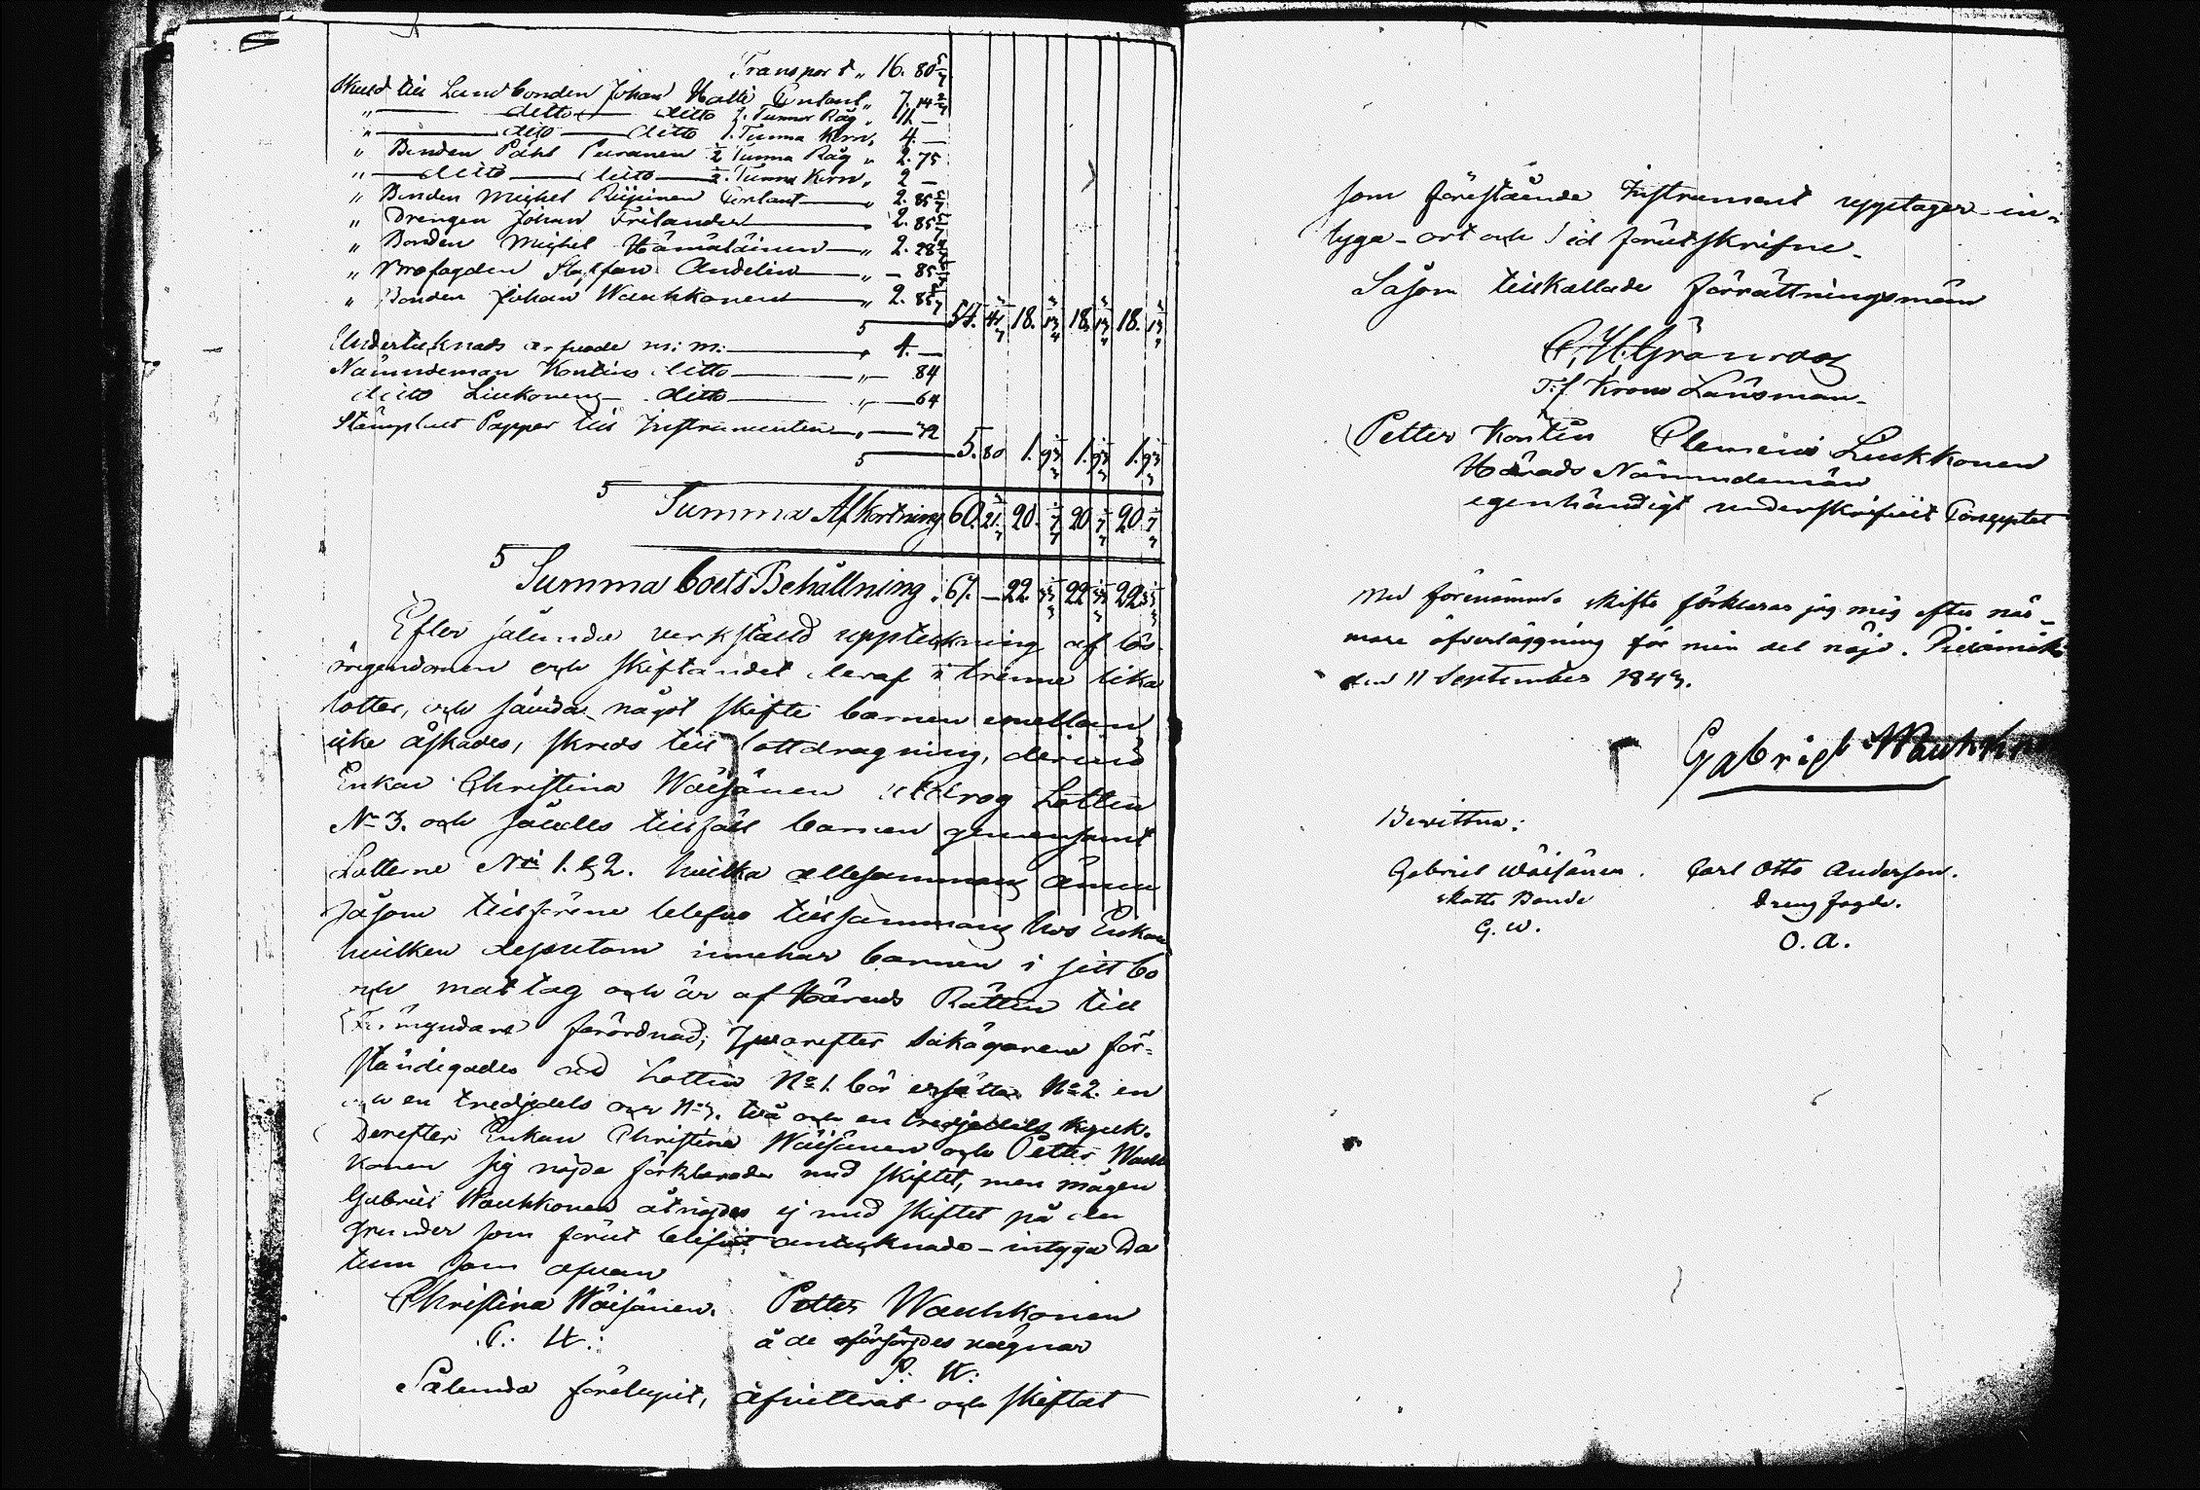 Transport „ 16. 80 5/7
Skuld till Landbonden Johan Halli Contant „ 7. 14 2/7
„ ditto ditto 2. Tunnor Råg „ 11. —
„ dito ditto 1. Tunna Korn, 4. —
„ Bonden Påhl Piiranen ½ Tunna Råg „ 2. 75
„ ditto ditto ½ Tunna Korn „ 2 —
„ Bonden Michel Contant „ 2. 85 5/7
„ Drengen Johan Frilander 2. 85 5/7
„ Bonden Michel Hämäläinen „ 2. 28 4/7
„ Staffan Andelin „ — 85 5/7
„ Bonden Johan Wauhkonen „ 2. 85 5/7
54. 41 18. 18. 18.
Undertecknads arfvode m: m: „ 4. —
Nämndeman Kontins ditto „ 84
ditto Liukkonens ditto „ 64
Stämplat Papper till Instrumenten „ 32
5. 80 1. 93 1. 93 1. 93
Summa Afkortning 60. 21 20. 20 20
Summa boets Behållning. 67. — 22. 22 22
Efter sålunda verkställd uppteckning af lös-
öregendomen och skiftandet deraf i trenne lika
lotter, och sedan något skifte barnen emellan
icke åskades, skreds till lottdragning, dervid
Enkan Christina Wäisänen utdrog Lotten
No 3. och således tillföll barnen gemensamt
Lotterne No 1. & 2. hvilka allesammans ännu
såsom tillförene blefvo tillsammans hos Enkan
hvilken dessutom innehar barnen i sitt bo
och mattag och är af Härads Rätten till
Förmyndare förordnad; Hvarefter sakägarene för-
ständigades att Lotten No 1. bör ersätta No 2. en
och en tredjedels och No 3. två och en tredjedels kopek.
Derefter Enkan Christina Wäisänen och Petter Wauh
konen sig nöjde förklarade med skiftet, men mågen
Gabriel Wauhkonen åtnöjdes ej med skiftet på de
grunder som förut blifvit antecknade – intyga Da
tum som ofvan
Christina Wäisänen. Petter Wauhkonen
C: W: å de oförsörjdes vägnar
P. W.
Sålunda förelupit, afvittrat och skiftat
som förestående Instrument upptager in-
tyga – ort och tid förutskrifne.
Såsom tillkallade förrättningsmän
C. H. Grönroos
T.f Krono Länsman.
Petter Kontin Clemens Liukkonen
Härads Nämndemän
egenhändigt underskrifvit Conceptet
Med förenämnde skifte förklarar jag mig efter när-
mare öfverläggning för min del nöjd. Pielamäki
den 11 September 1843.
Gabriel Wauhko
Bevittna:
Gabriel Wäisänen. Carl Otto Anderson.
Skatte Bonde Dreng fogde.
G. W. O. A.